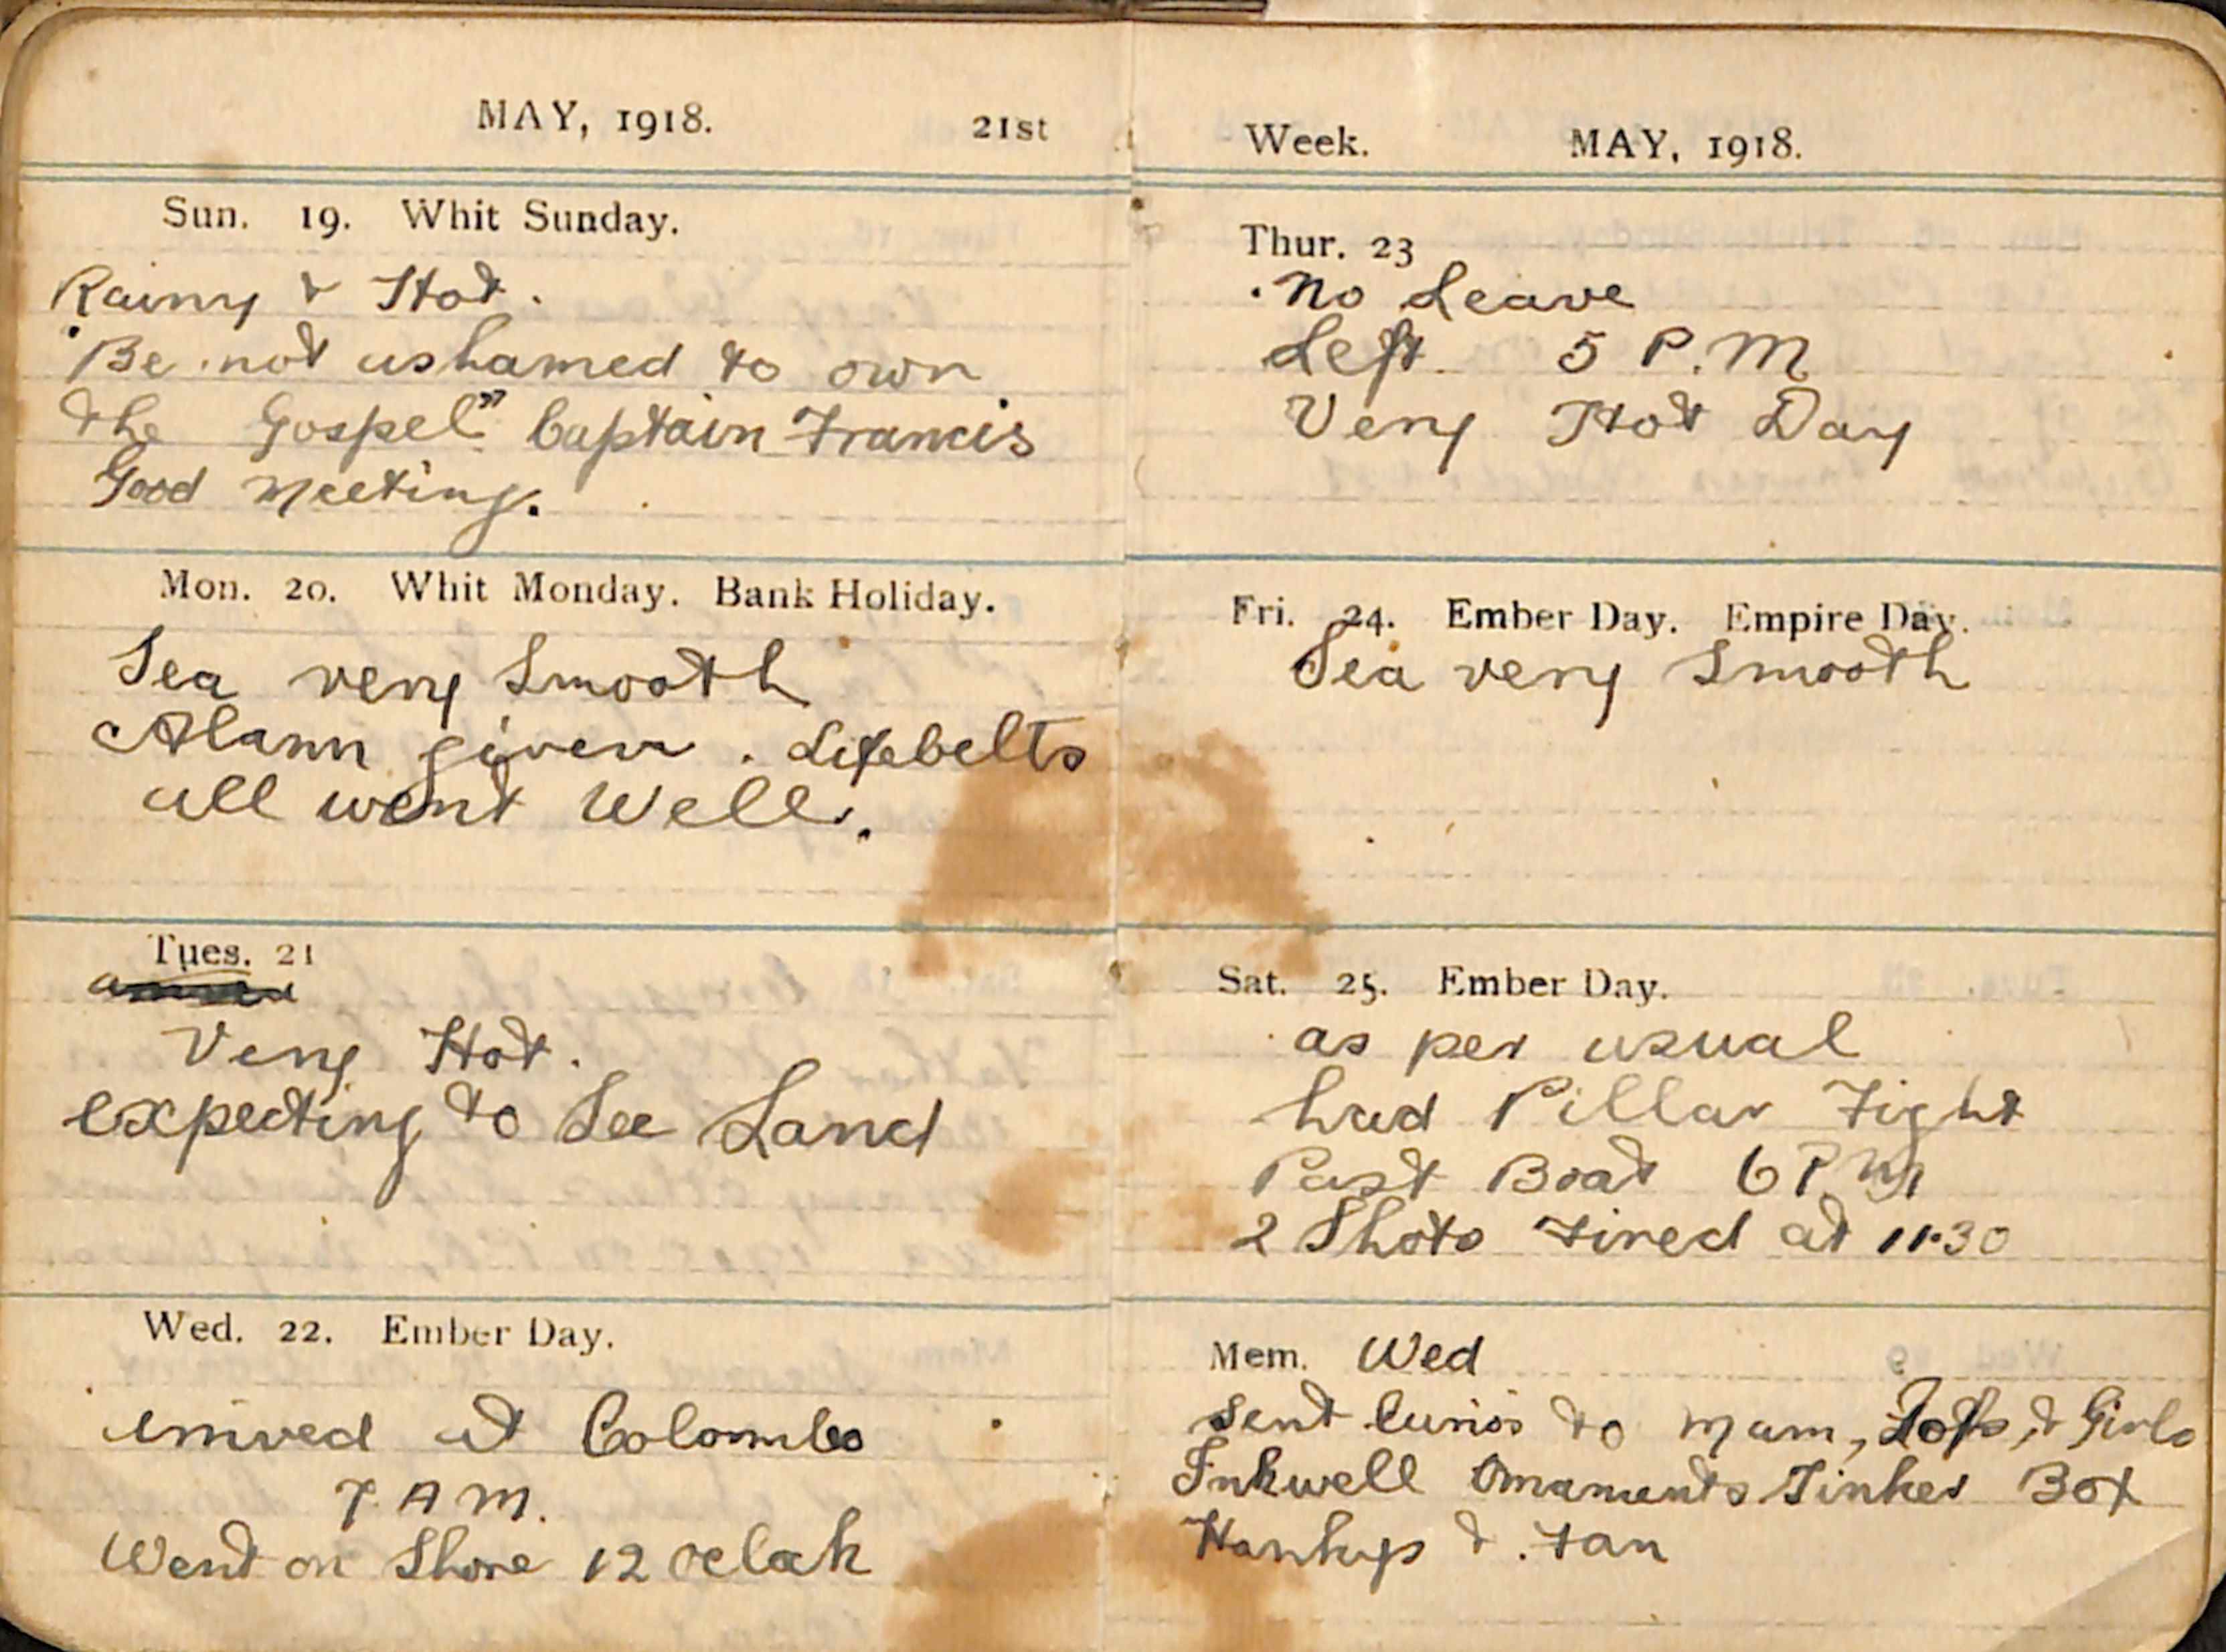 MAY, 1918. 21st
Sun. 19. Whit Sunday.
Rainy & Hot.
"Be not ashamed to own
the Gospel" Captain Francis
Good Meeting.
Mon. 20. Whit Monday. Bank Holiday.
Sea very Smooth
Alarm given. Lifebelts
all went Well.
Tues. 21
Very Hot.
expecting to See Land
Wed. 22. Ember Day.
arrived at Colombo
7. A M.
Went on Shore 12 oclock
Week. MAY, 1918.
Thur. 23
No Leave
Left 5 P.M
Very Hot Day
Fri. 24. Ember Day. Empire Day.
Sea very Smooth
Sat. 25. Ember Day.
as per usual
had Pillar Fight
Past Boat 6 P M
2 Shots Fired at 11.30
Mem. Wed
sent Curios to Mam, & Girls
Inkwell Ornaments Tinker Box
Hankys & Fan